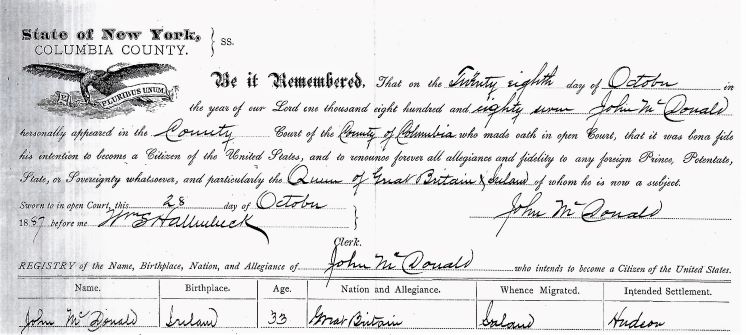 State of New York,
COLUMBIA COUNTY. } SS.
E PLURIBUS UNUM
Be it Remembered, That on the Twenty eighth day of October in
the year of our Lord one thousand eight hundred and eighty seven John McDonald
personally appeared in the County Court of the County of Columbia who made oath in open Court, that it was bona fide
his intention to become a Citizen of the United States, and to renounce forever all allegiance and fidelity to any foreign Prince, Potentate,
State, or Sovereignty whatsoever, and particularly the Queen of Great Britain & Ireland of whom he is now a subject.
Sworn to in open Court, this 28 day of October
1887 before me Wm S Hallenbeck
John McDonald
Clerk.
REGISTRY of the Name, Birthplace, Nation, and Allegiance of John McDonald who intends to become a Citizen of the United States.
Name. Birthplace. Age. Nation and Allegiance. Whence Migrated. Intended Settlement.
John McDonald Ireland 33 Great Britain Ireland Hudson